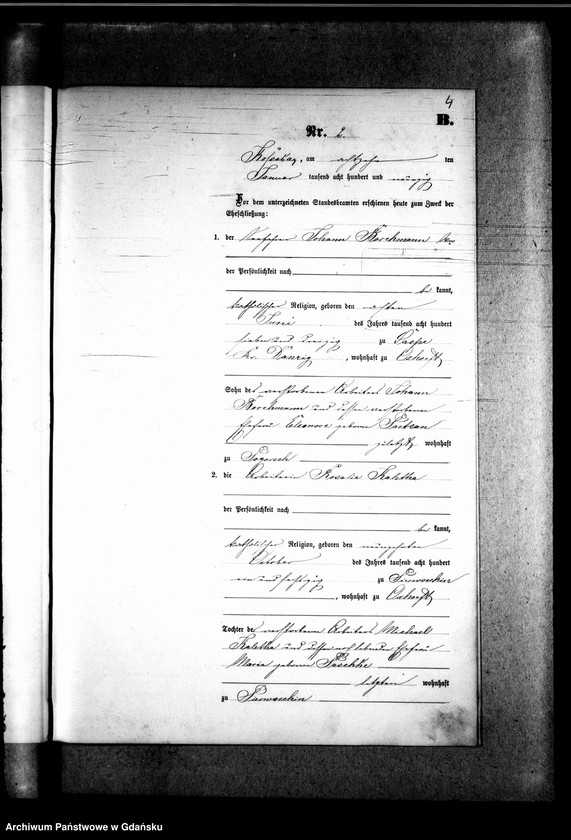 4
B.
Nr. 2.
am achtzehn ten
Januar tausend acht hundert und neunzig
Vor dem unterzeichneten Standesbeamten erschienen heute zum Zweck der
Eheschließung:
1. der Johann Borchmann
der Persönlichkeit nach
be kannt,
katholischer Religion, geboren den achten
Juni des Jahres tausend acht hundert
sieben und zwanzig zu
Kr. Danzig, wohnhaft zu Oxhöft
Sohn des verstorbenen Arbeiters Johann
Borchmann und dessen verstorbenen
Ehefrau Eleonore geborene
zuletzt wohnhaft
zu
2. die Arbeiterin Rosalie Kaletha
der Persönlichkeit nach
be kannt,
katholischer Religion, geboren den neunzehnten
October des Jahres tausend acht hundert
ein und sechszig zu
, wohnhaft zu Oxhöft
Tochter des verstorbenen Arbeiters Michael
Kaletha und dessen noch lebenden Ehefrau
Maria geborene Paschke
letztere wohnhaft
zu
Archiwum Państwowe w Gdańsku